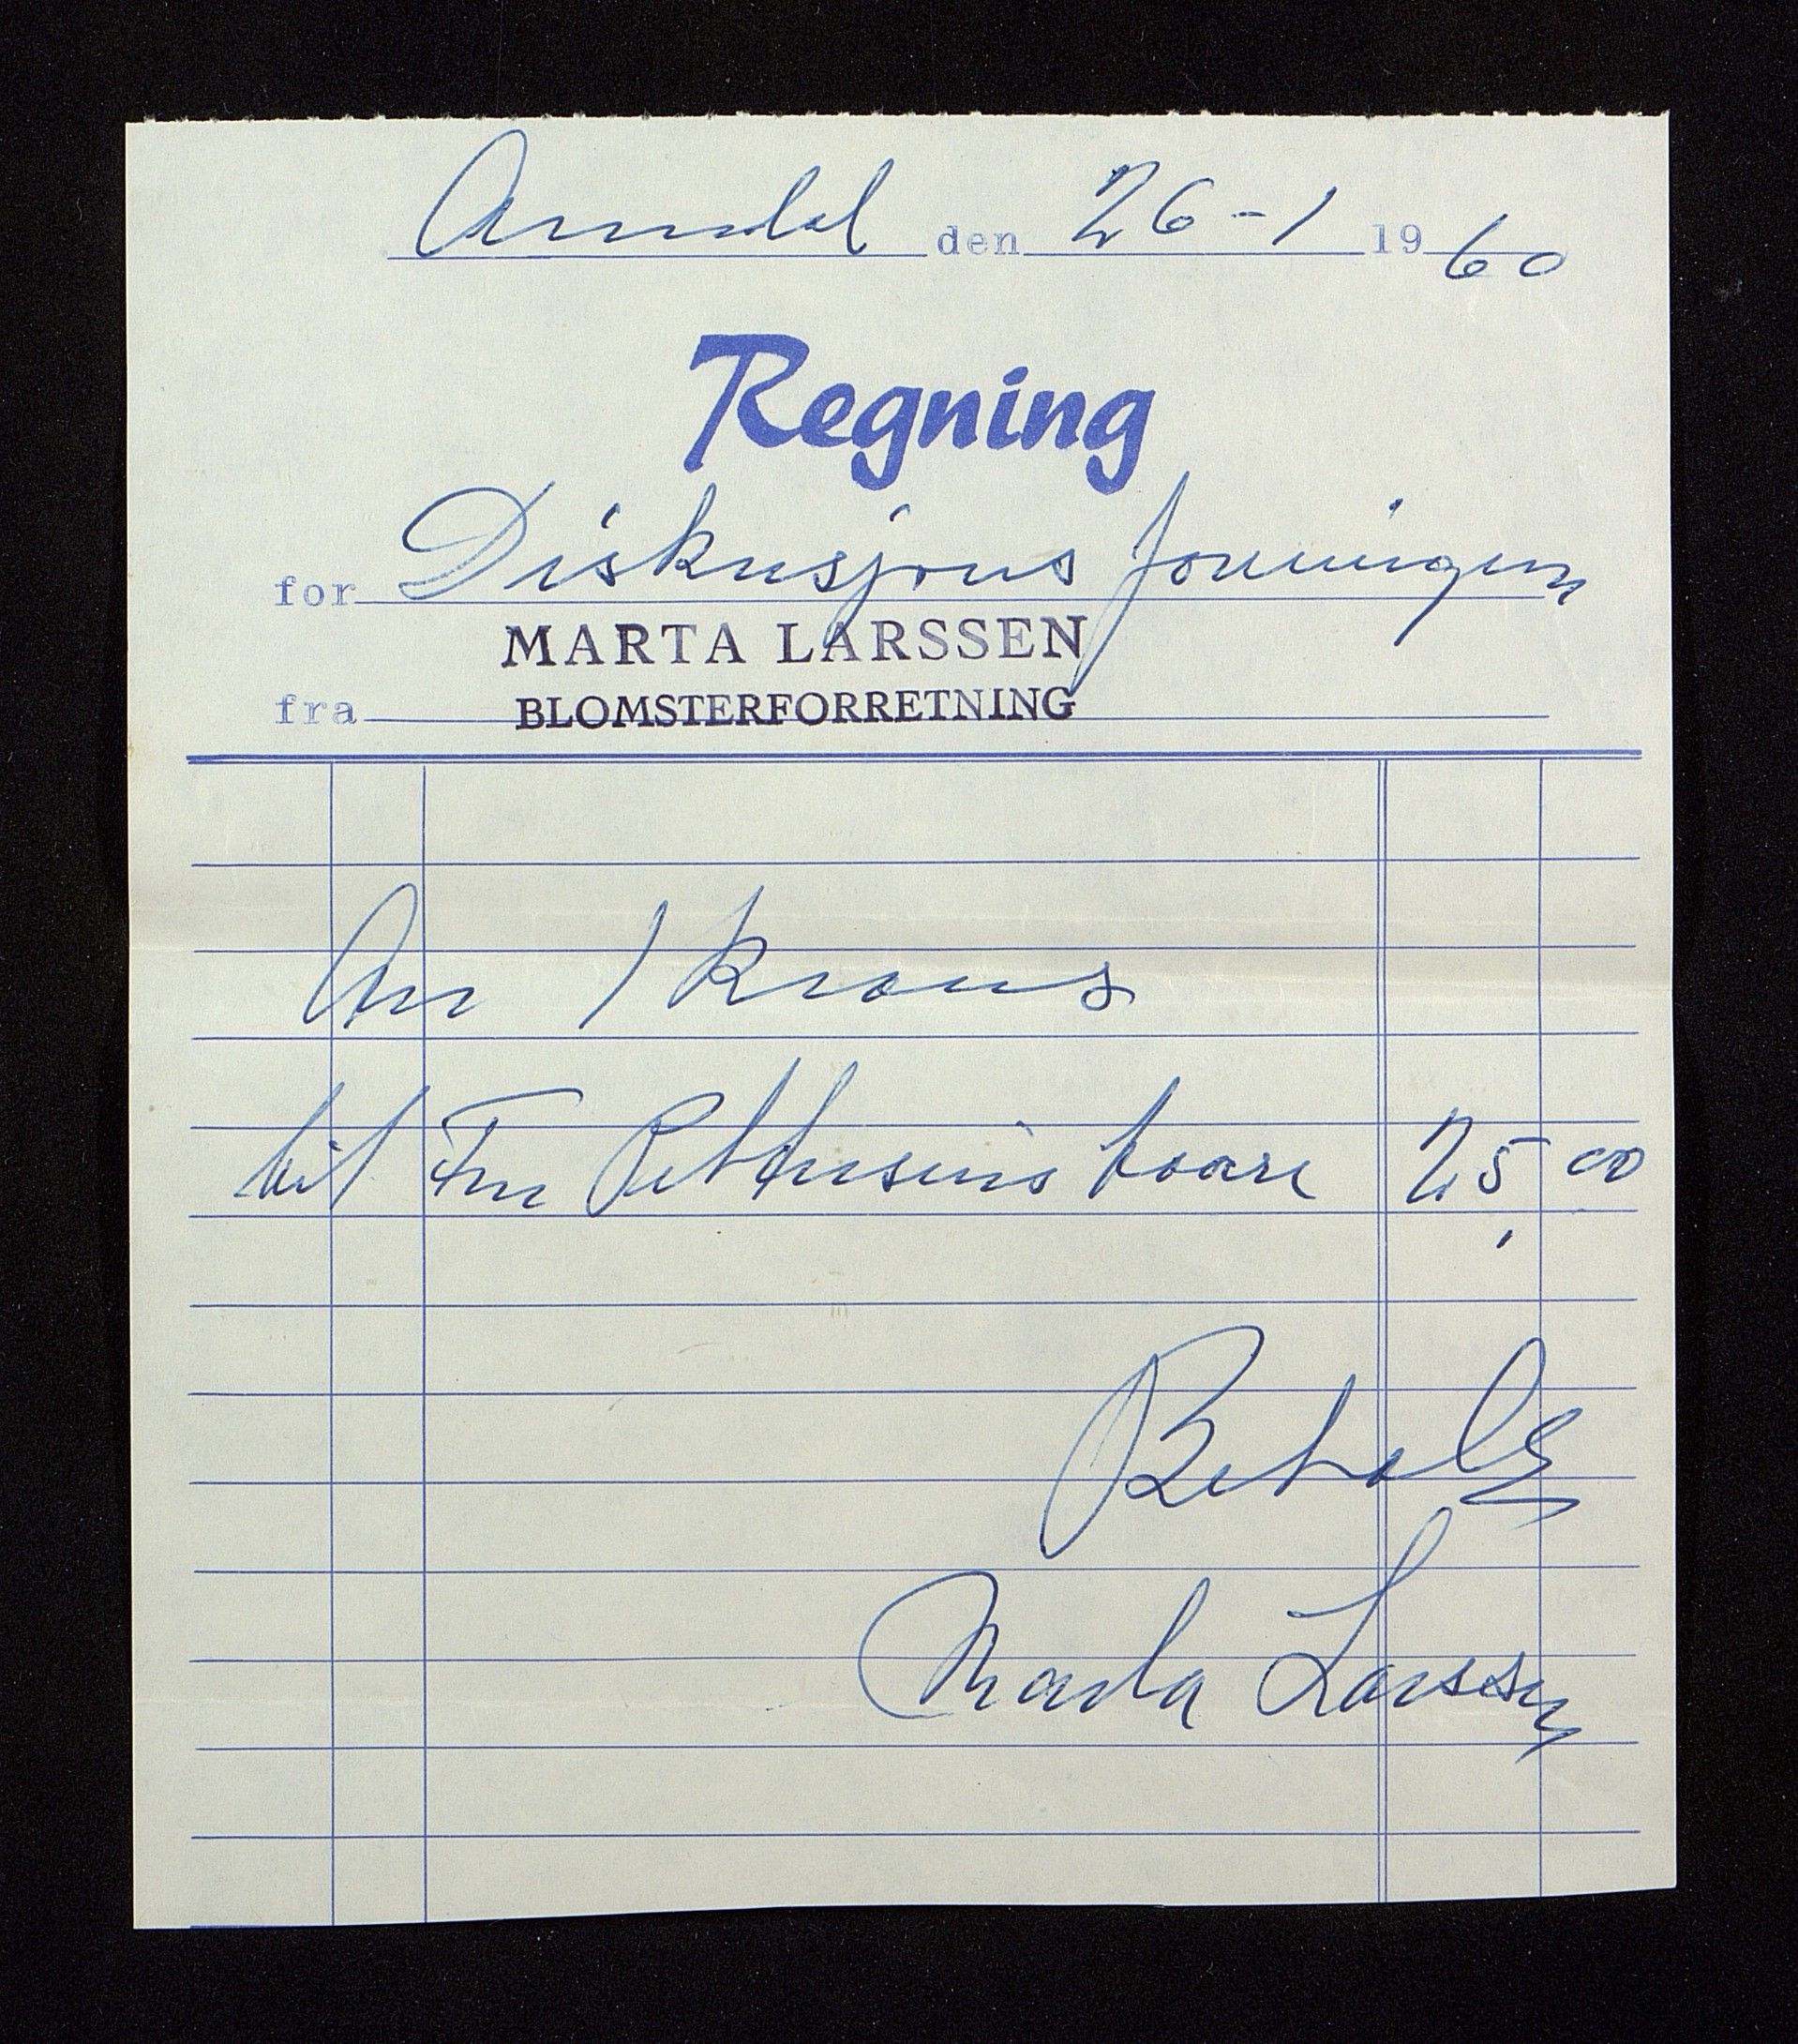 Arendal den 26-1 1960
Regning
for Diskusjons foreningen
MARTA LARSSEN
fra BLOMSTERFORRETNING
An 1 Krans
til Fru baare 25,00
Betalt
Marta Larssen